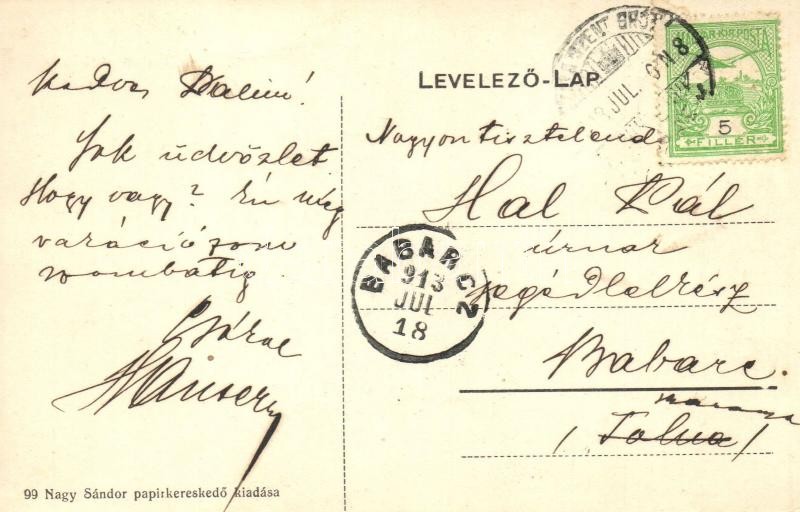 LEVELEZŐ-LAP.
MAGYAR KIR. POSTA
5
FILLÉR
JUL.
Kedves Palim!
Sok üdvözlet
Hogy vagy? Én még
vakációzom
szombatig.
Nagyontisztelendő
Hal Pál
úrnak
segédlelkész
Babarc.
Baranya
(Tolna)
BABARCZ
913
JUL
18
99 Nagy Sándor papirkereskedő kiadása